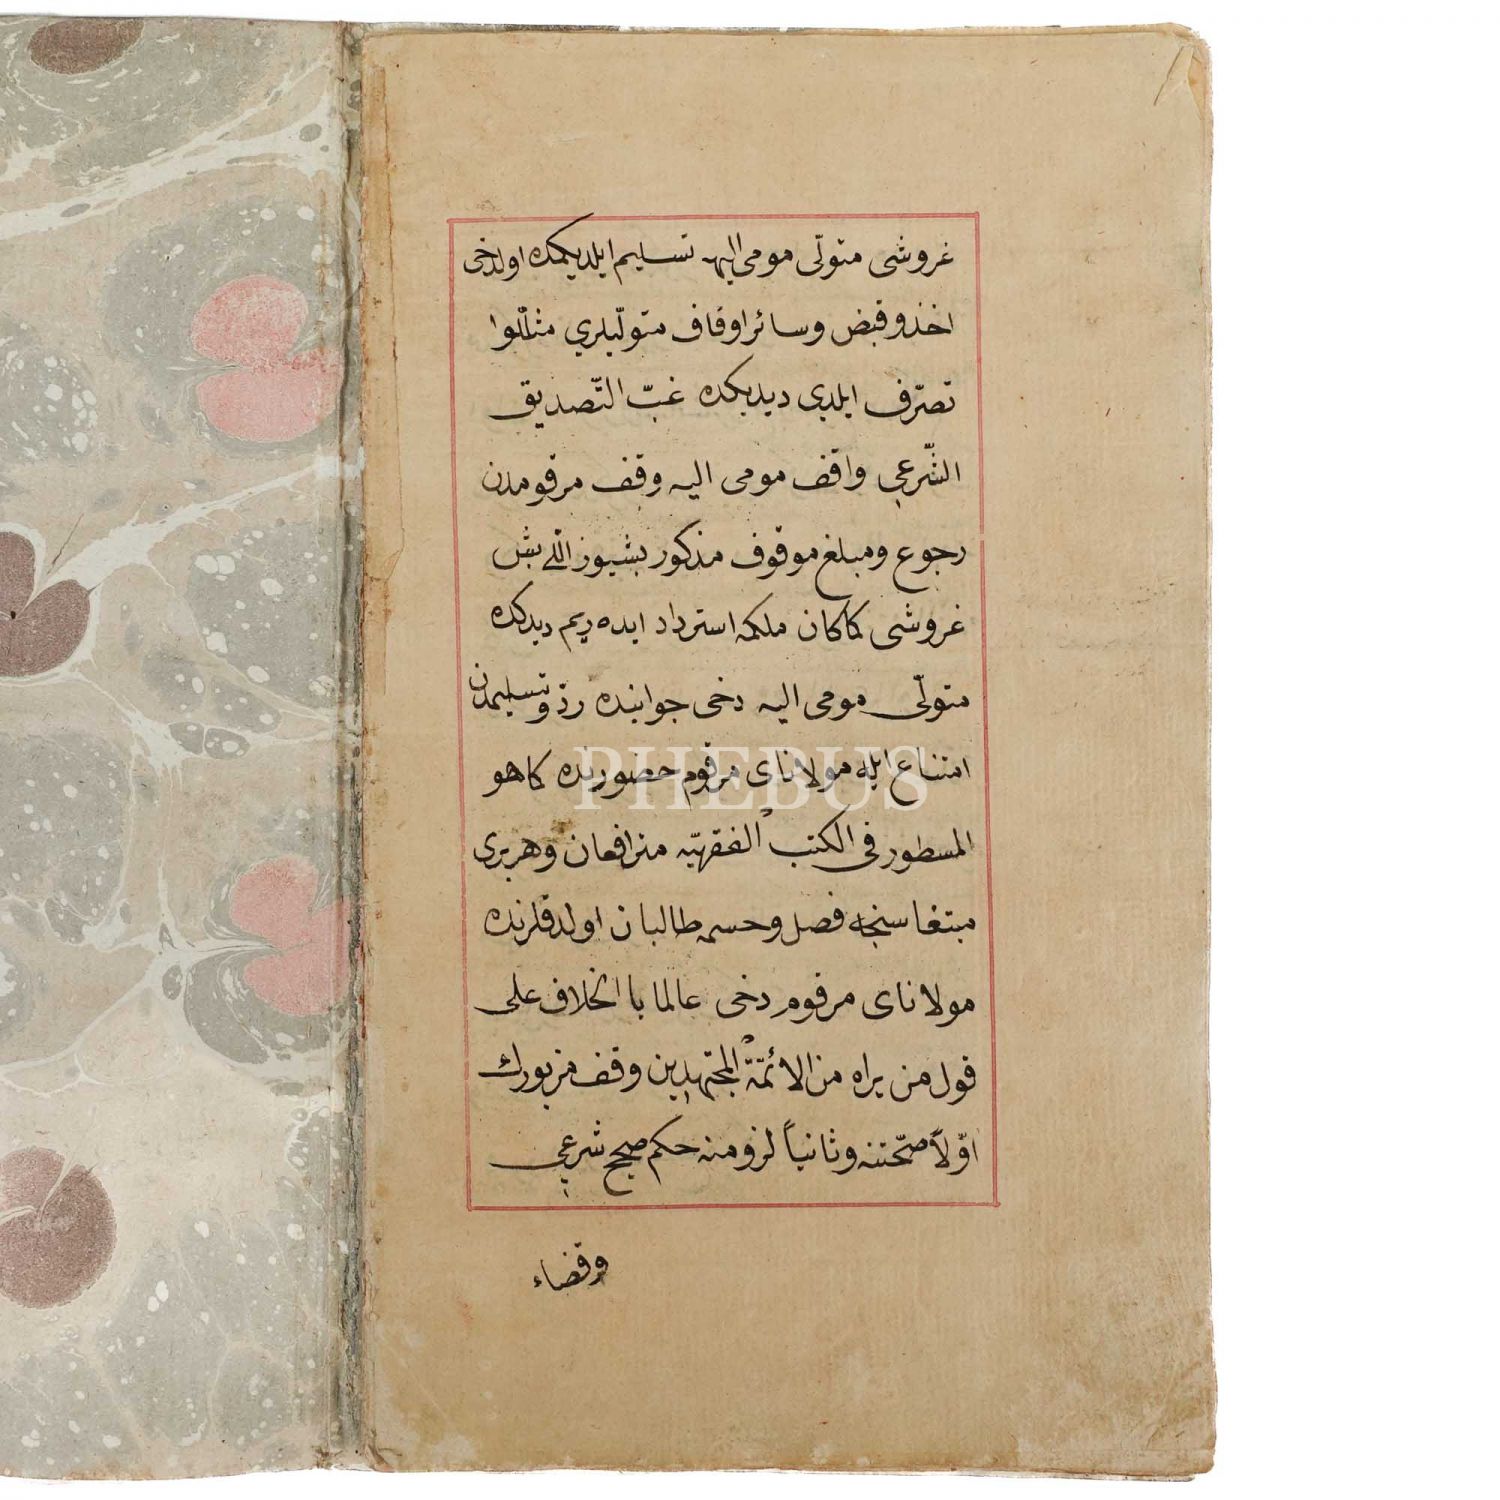 غروشی متولّی مومی الیه تسلیم ایلدیکمده اولدخی
اخذ و قبض و سائر اوقاف متولّیلری مثللّوا
تصرّف ایلدی دیدیکده غبّ التّصدیق
الشّرعی واقف مومی الیه وقف مرقومدن
رجوع و مبلغ موقوف مذکور بشیوز اللی بش
غروشی کماکان ملکمه استرداد ایده ریم دیدکده
متولّی مومی الیه دخی جوابنده ردّ و تسلیمدن
امتناع ایله مولانای مرقوم حضورینده کما هو
المسطور فی الکتب الفقهیّه مترافعان و هر بری
مبتغاسنجه فصل و حسمه طالبان اولدقلرنده
مولانای مرقوم دخی عالما بالخلاف علی
قول من یراه من الائمّة المجتهدین وقف مزبورک
اوّلاً صحّتنه و ثانیاً لزومنه حکم صحیح شرعی
وقضاء
PHEBUS